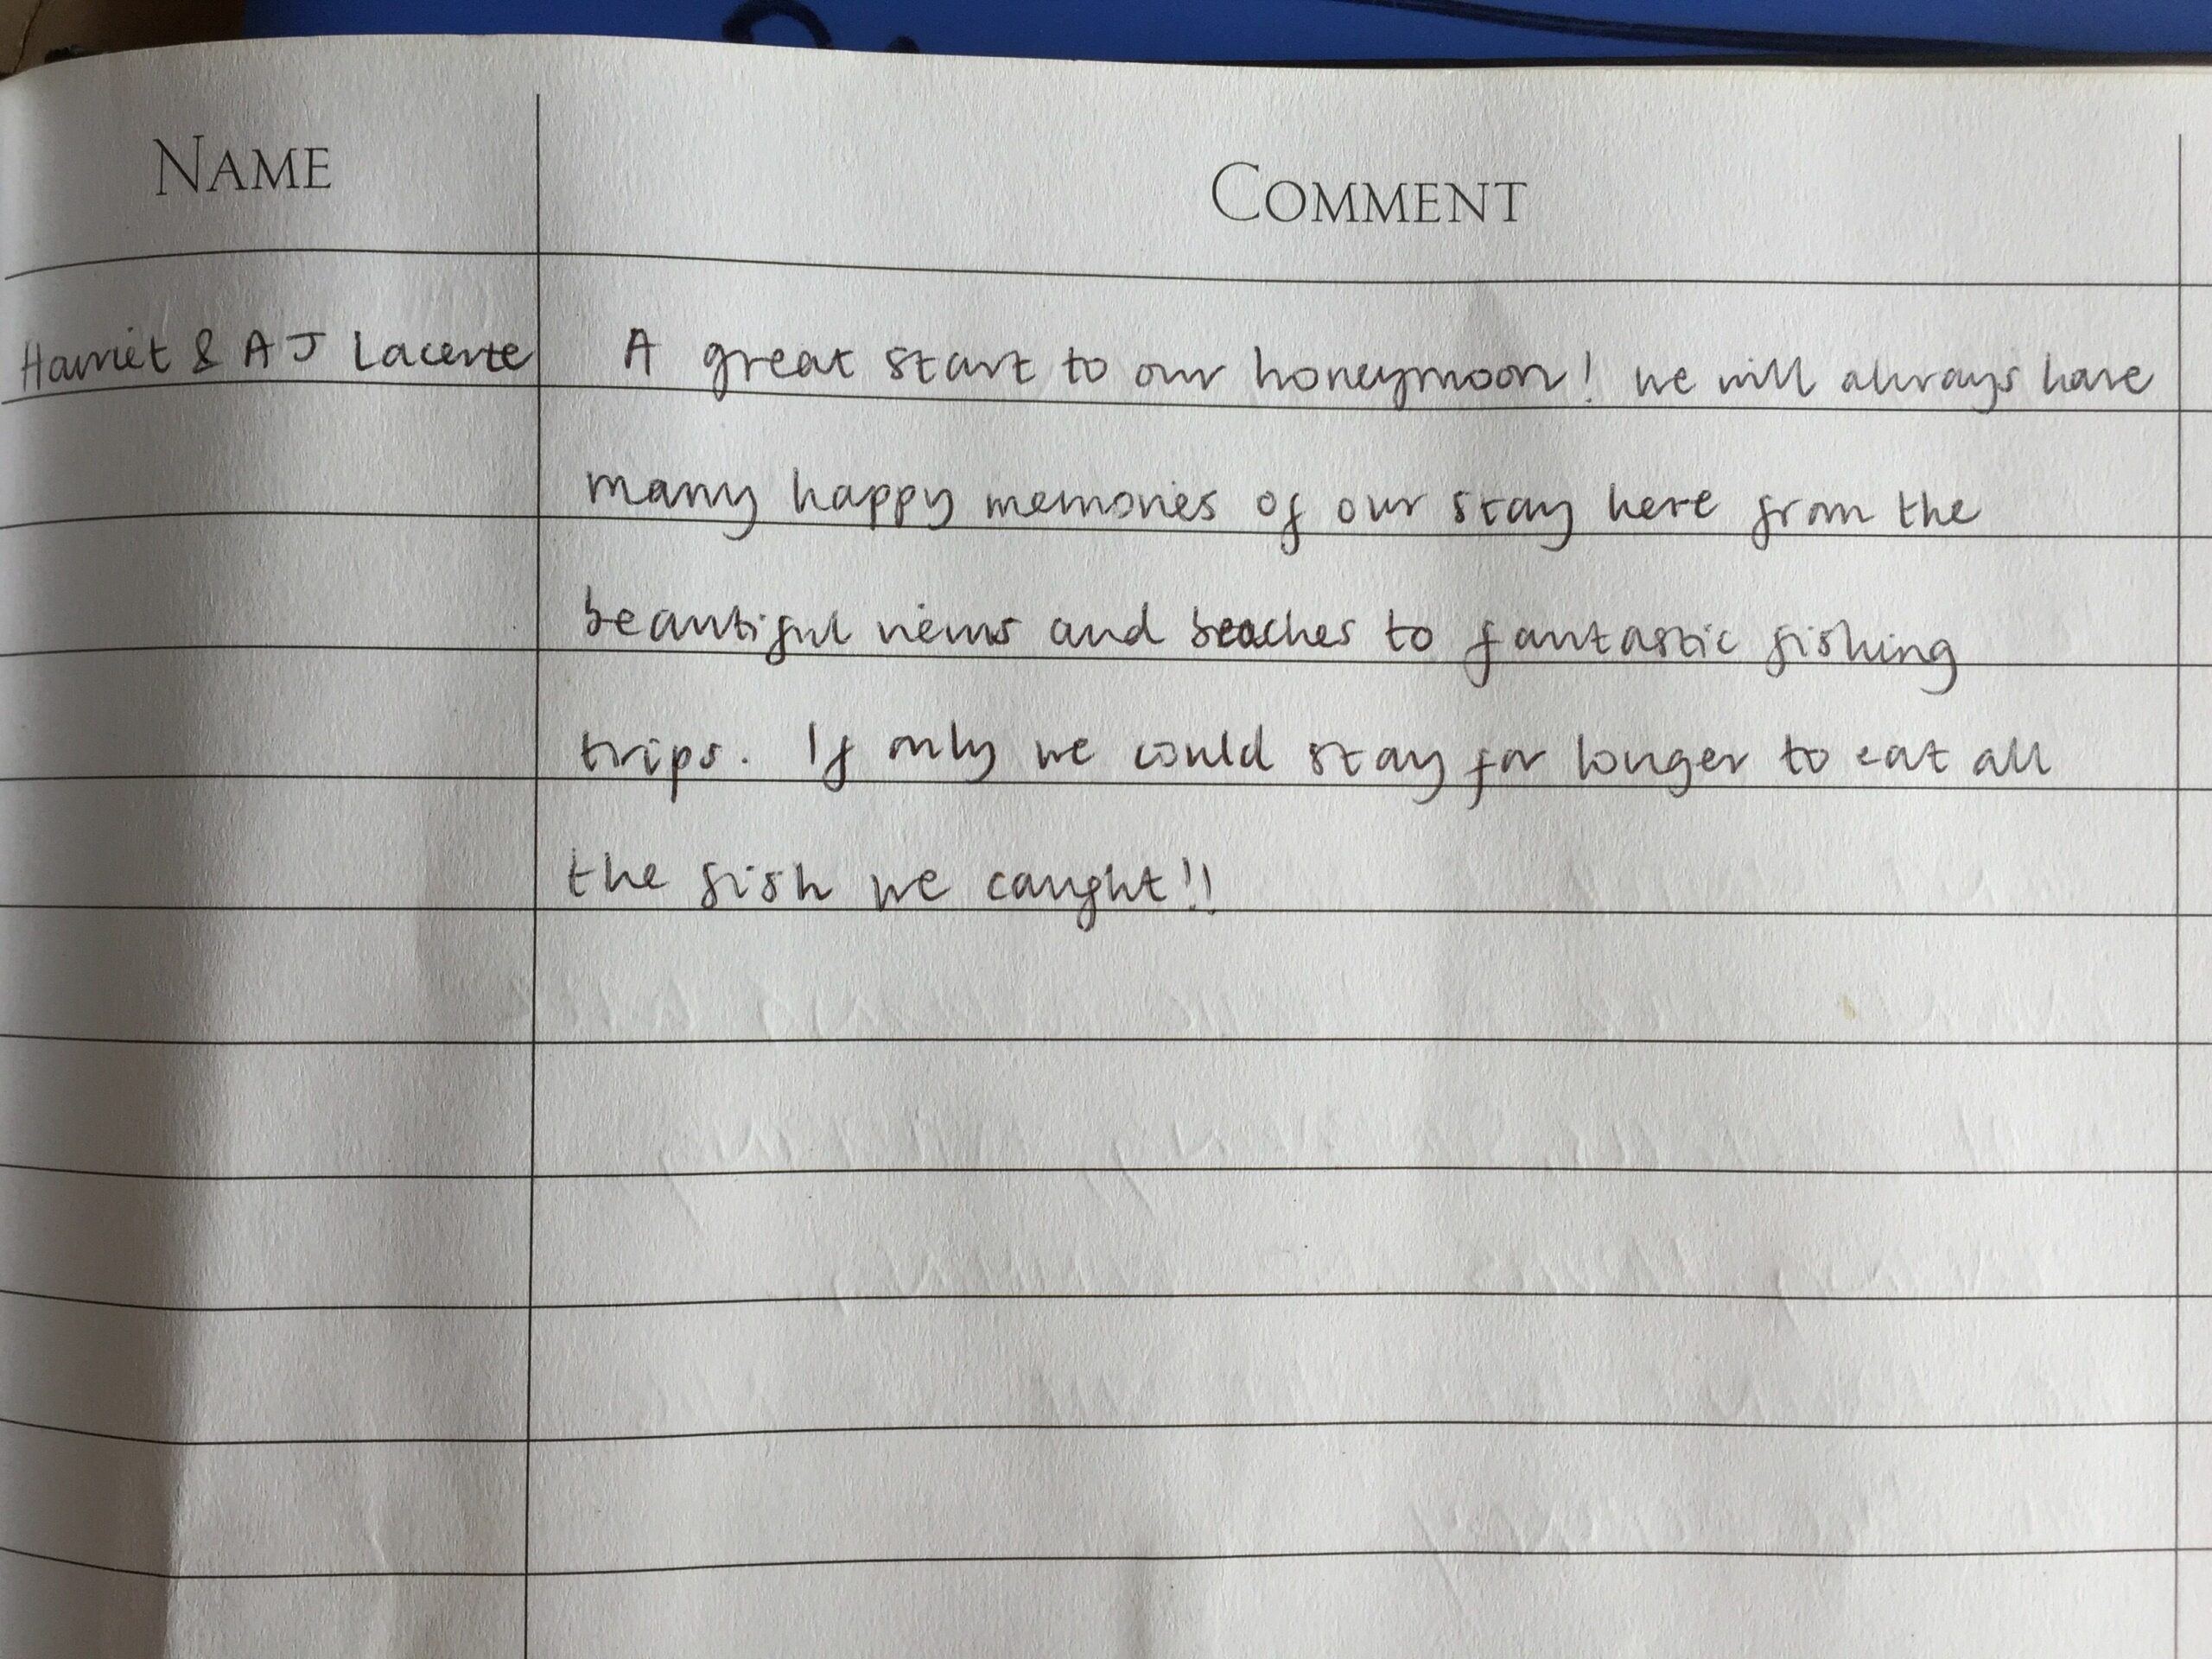 NAME COMMENT
Harriet & AJ Lacerte A great start to our honeymoon! we will always have
many happy memories of our stay here from the
beautiful views and beaches to fantastic fishing
trips. If only we could stay for longer to eat all
the fish we caught!!